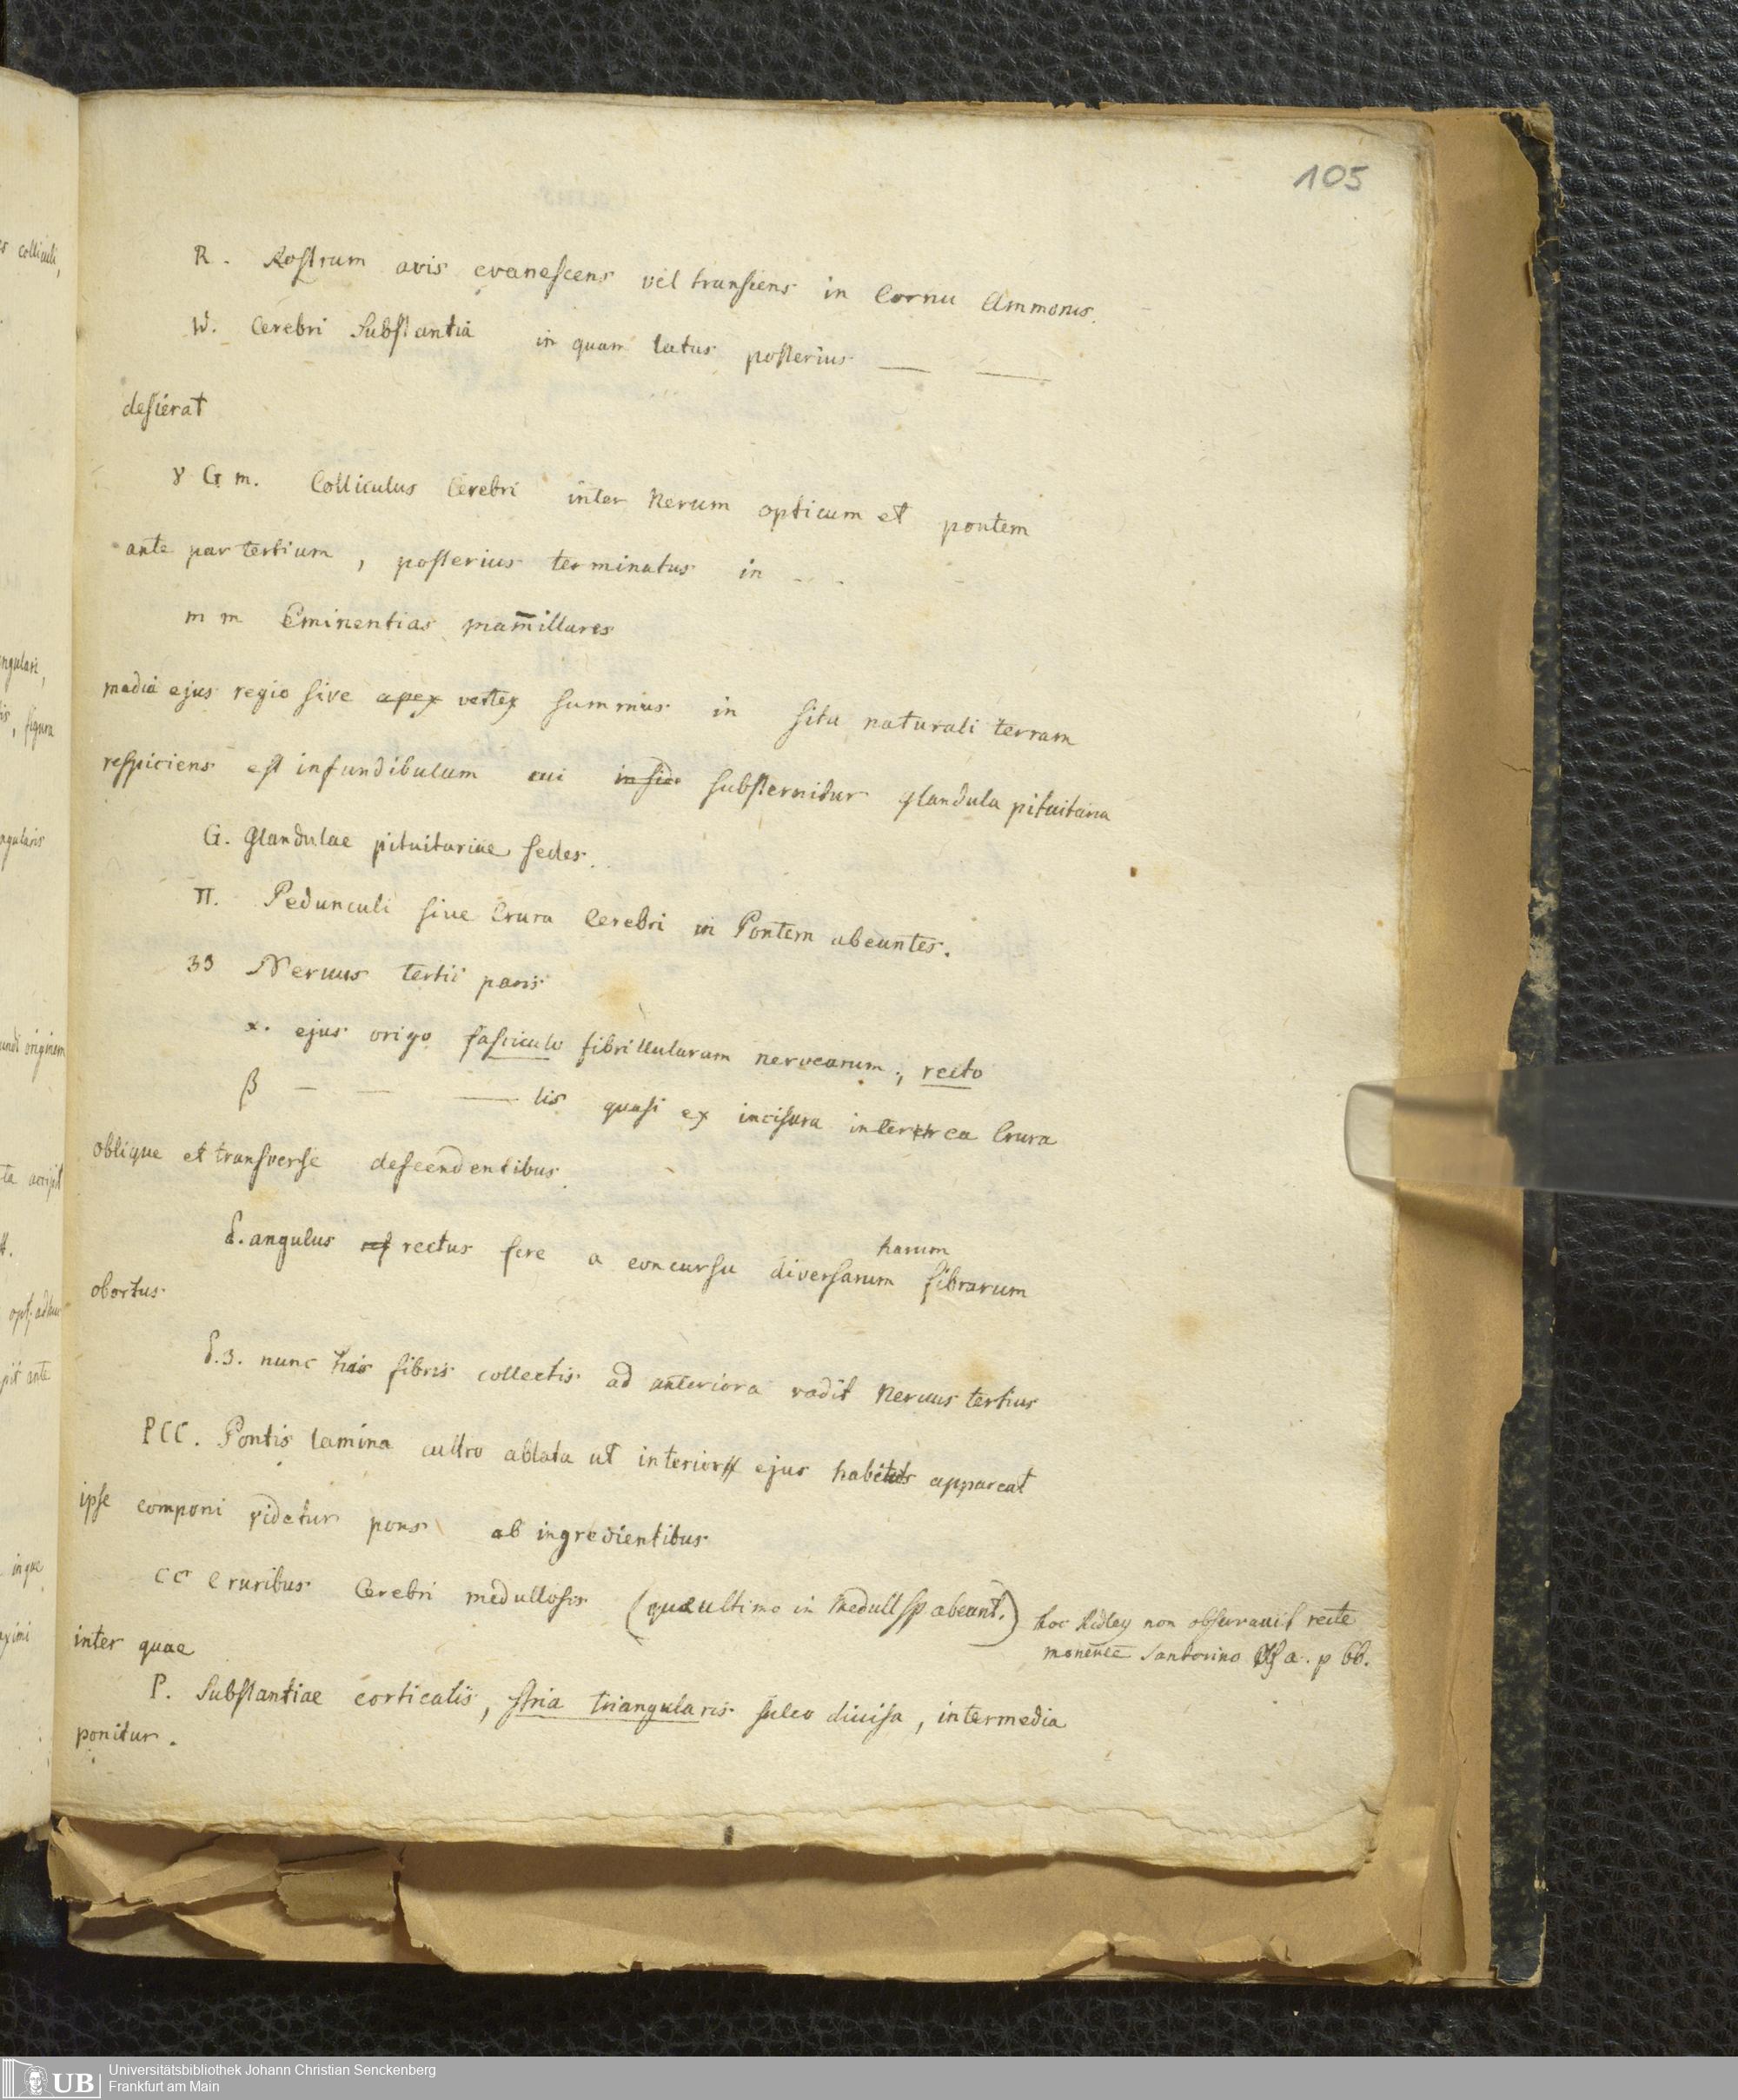 105
R. Rostrum avis evanescens vel transiens in Cornu Ammonis.
W. Cerebri Substantia in quam latus posterius — —
desierat
γ G m. Colliculus Cerebri inter Nervum opticum et pontem
ante par tertium, posterius terminatus in ...
m m Eminentias mam̄illares
media ejus regio sive apex vertex summus in situ naturali terram
respiciens est infundibulum cui substernitur glandula pituitaria
G. Glandulae pituitariae sedes.
π. Pedunculi sive Crura Cerebri in Pontem abeuntes.
33 Nervus tertii paris
α. ejus origo fasciculo fibrillularum nervearum; recto
β — — — lis quasi ex incisura inter ea Crura
oblique et transverse descendentibus.
δ. angulus rectus fere a concursu diversarum harum fibrarum
obortus.
δ.3. nunc his fibris collectis ad anteriora vadit Nervus tertius
PCC. Pontis lamina cultro ablata ut interior ejus habitus appareat
ipse componi videtur pons ab ingredientibus
CC Cruribus Cerebri medullosis (quae ultimo in Medull sp abeunt.) hoc Ridley non observavit recte
monente Santorino a. p 66.
inter quae
P. Substantiae corticalis, stria triangularis sulco divisa, intermedia
ponitur.
UB
Universitätsbibliothek Johann Christian Senckenberg
Frankfurt am Main